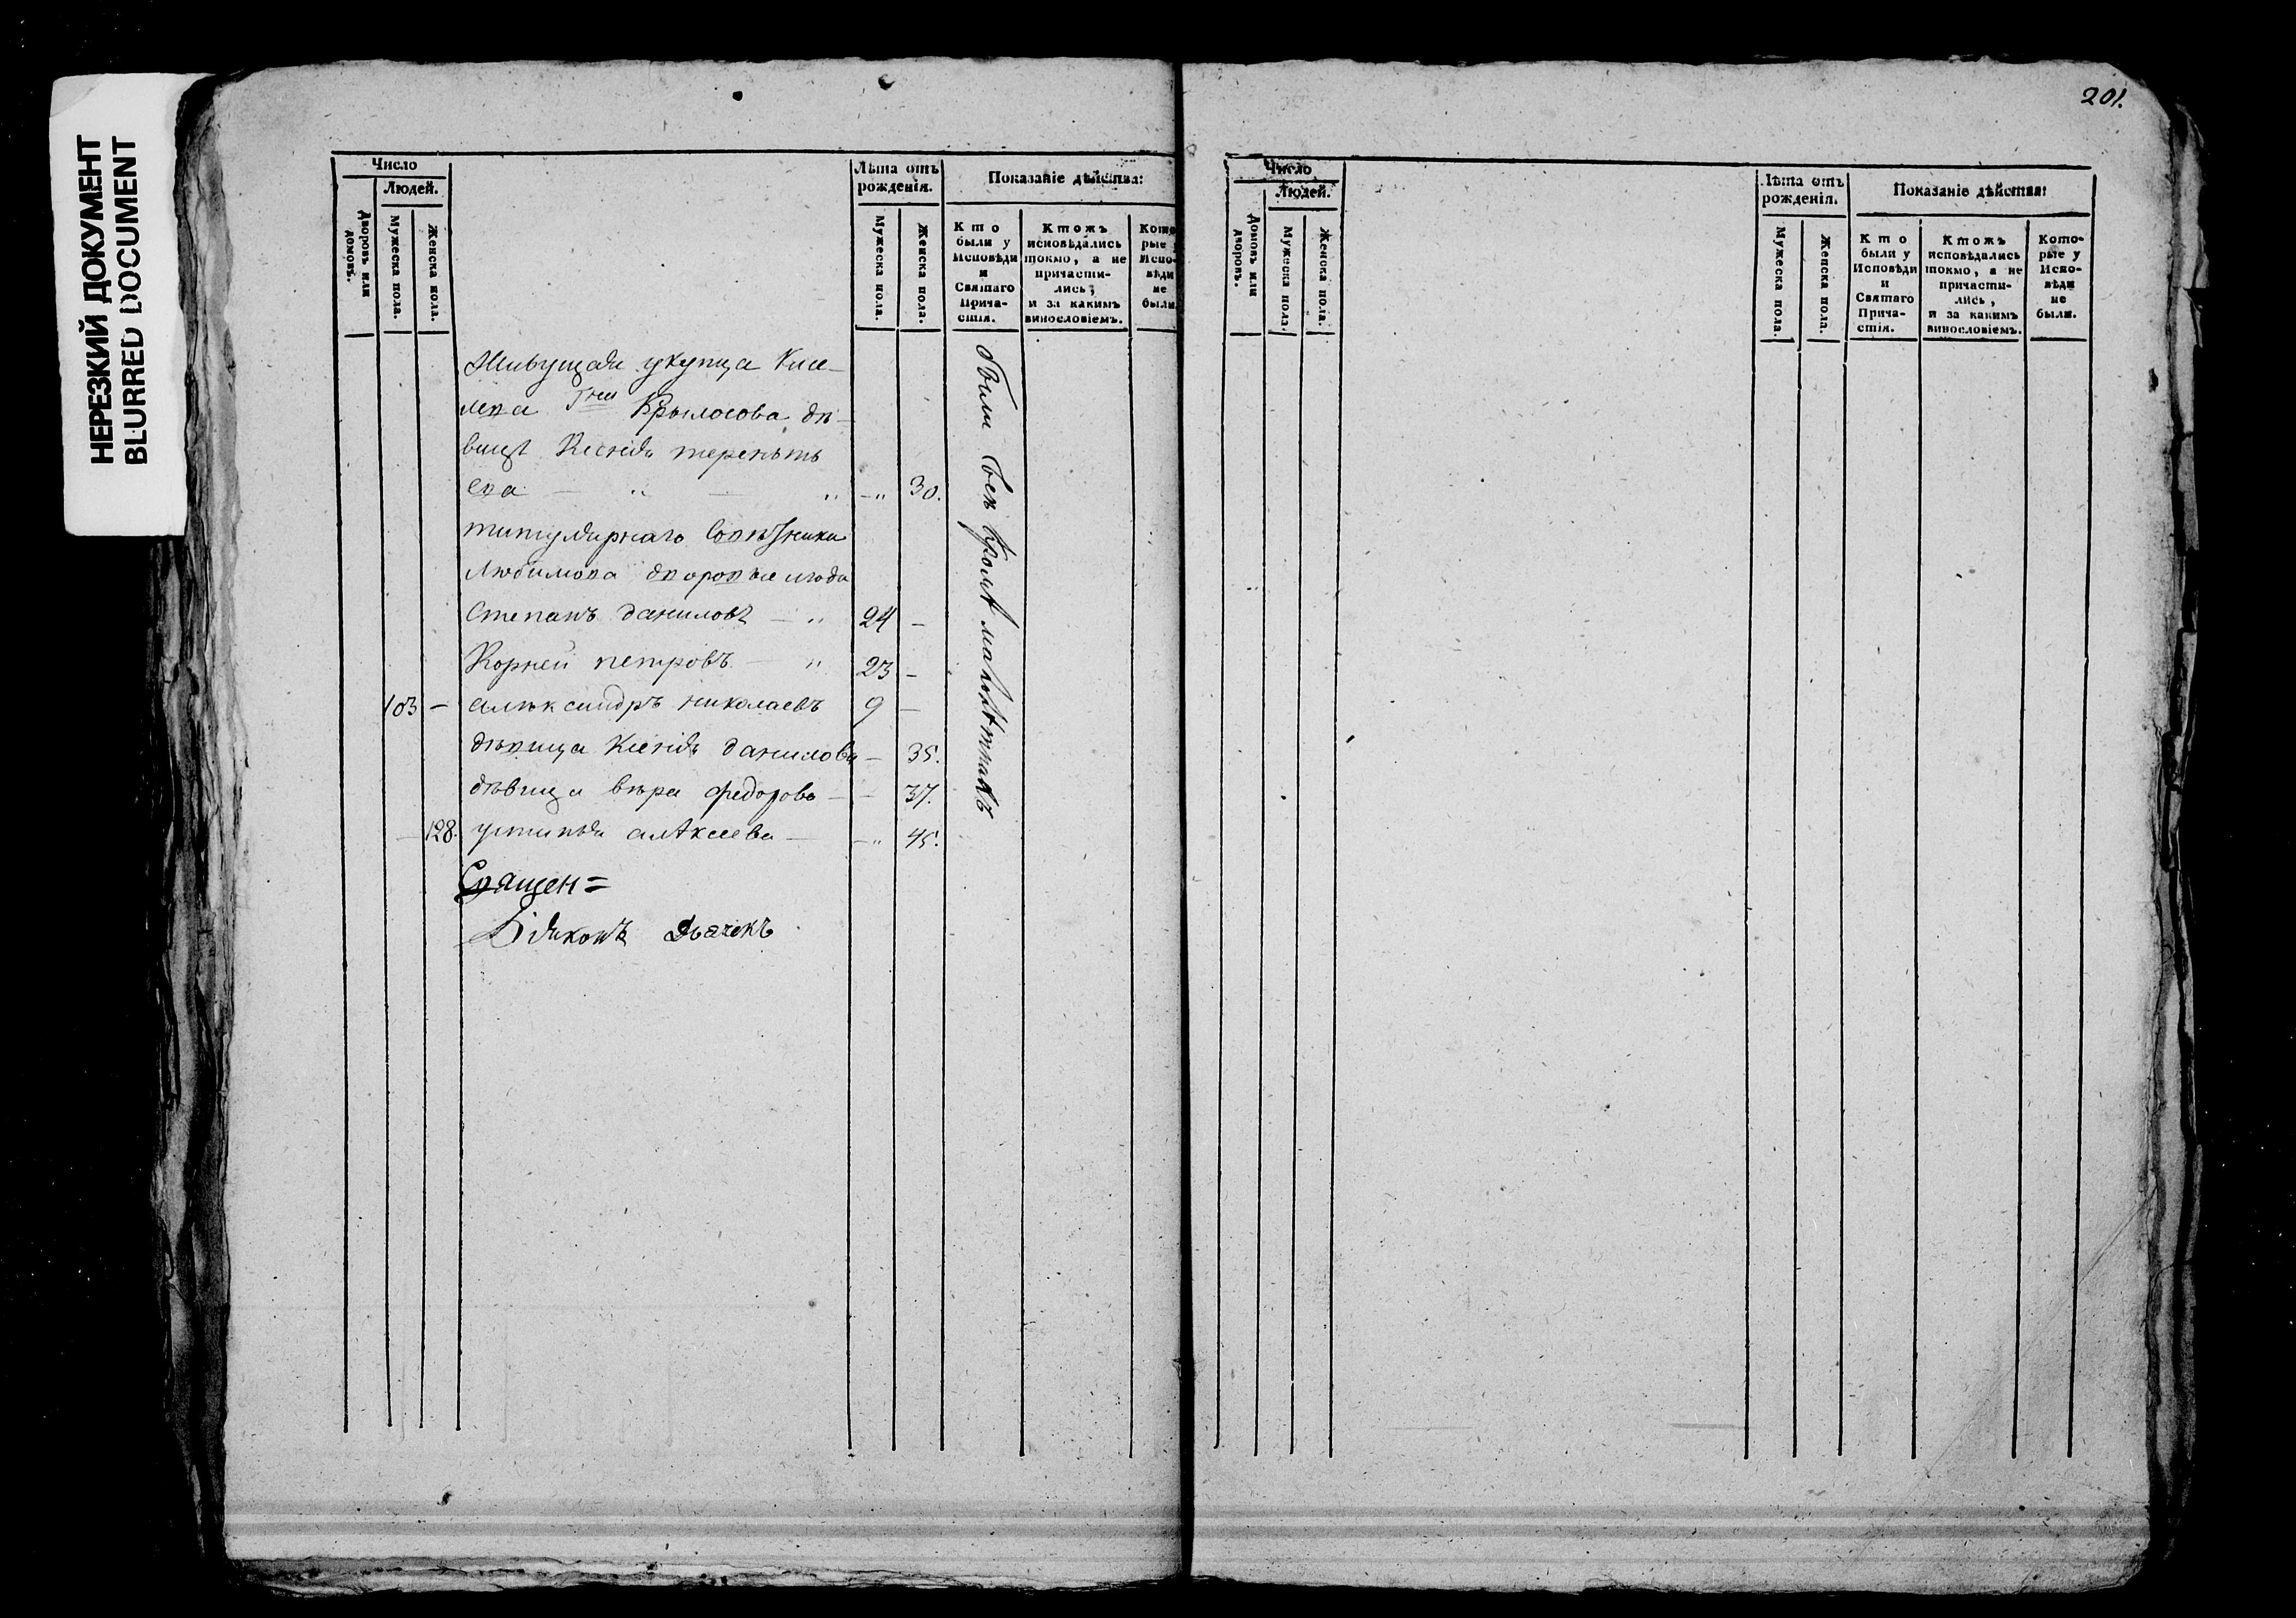 НЕРЕЗКИЙ ДОКУМЕНТ
BLURRED DOCUMENT
Число
Людей.
Дворовъ или домовъ.
Мужеска пола.
Женска пола.
Лѣта отъ рожденія.
Мужеска пола.
Женска пола.
Показаніе дѣйства:
Кто были у Исповѣди и Святаго Прича-стія.
Ктожъ исповѣдались токмо, а не причасти-лись, и за какимъ винословіемъ.
Кото рые Испо- вѣди не были
Живущая у купца Кисе-
лева Гжи Крылосова дѣ-
вица Ксенія терентъ
ева — " — " —" 30.
титулярнаго Совѣтника
Любимова дворовые люди
Степанъ даниловъ — " 24 —
Корней петровъ — " 23 —
103 — александръ николаевъ 9 —
дѣвица Ксенія данилова — 35.
дѣвица вѣра федорова — — 37.
128. устинья алѣксеева — —" 45.
Были всѣ кромѣ малолѣтнахъ
Священ=
Діаконъ Дьячекъ
201.
Число
Людей.
Домовъ или дворовъ.
Мужеска пола.
Женска пола.
Лѣта отъ рожденія.
Мужеска пола.
Женска пола.
Показаніе дѣйства:
Кто были у Исповѣди и Святаго Прича-стія.
Ктожъ исповѣдались токмо, а не причасти-лись, и за какимъ винословіемъ.
Кото-рые у Испо-вѣди не были.